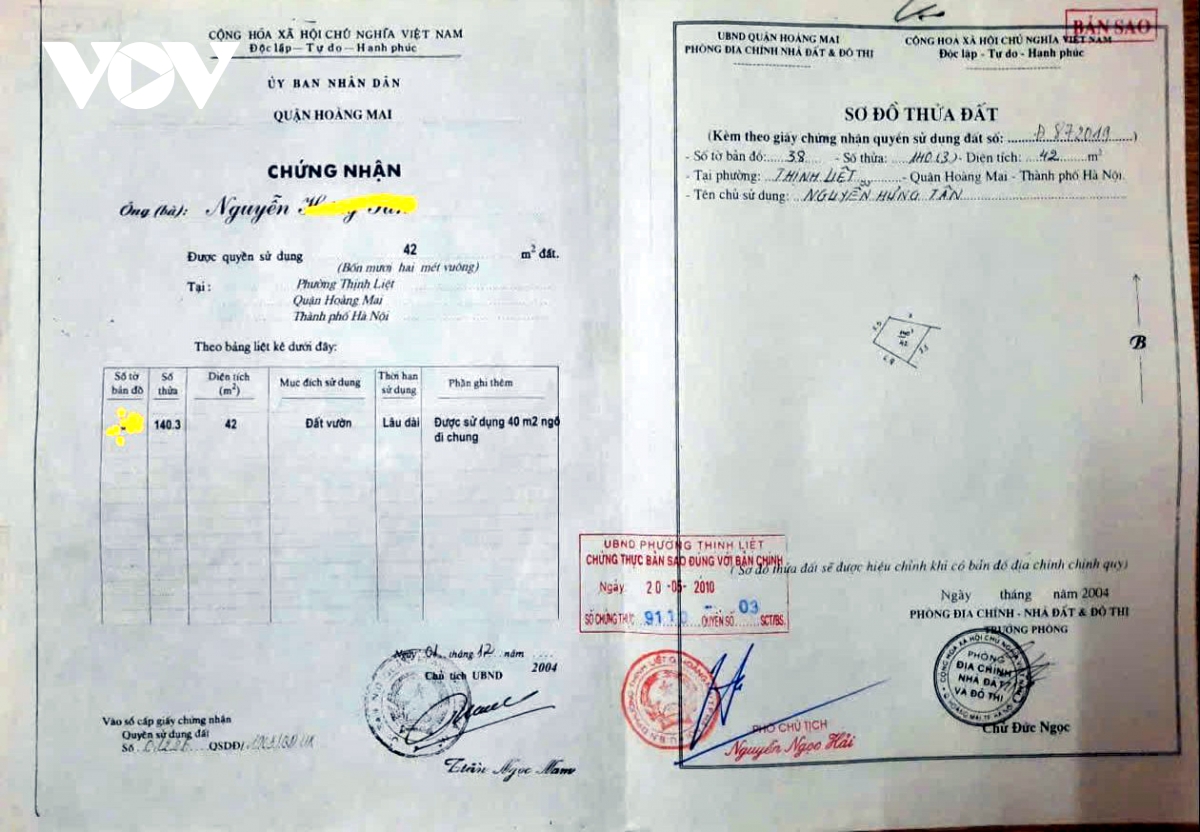 VOV
CỘNG HÒA XÃ HỘI CHỦ NGHĨA VIỆT NAM
Độc lập — Tự do — Hạnh phúc
ỦY BAN NHÂN DÂN
QUẬN HOÀNG MAI
CHỨNG NHẬN
Ông (bà): Nguyễn
Được quyền sử dụng 42 m² đất.
(Bốn mươi hai mét vuông)
Tại : Phường Thịnh Liệt
Quận Hoàng Mai
Thành phố Hà Nội
Theo bảng liệt kê dưới đây:
Số tờ bản đồ Số thửa Diện tích (m²) Mục đích sử dụng Thời hạn sử dụng Phần ghi thêm
140.3 42 Đất vườn Lâu dài Được sử dụng 40 m2 ngõ
đi chung
Ngày 01 tháng 12 năm 2004
Chủ tịch UBND
Trần Ngọc Nam
Vào sổ cấp giấy chứng nhận
Quyền sử dụng đất
Số QSDĐ/
BẢN SAO
UBND QUẬN HOÀNG MAI
PHÒNG ĐỊA CHÍNH NHÀ ĐẤT & ĐÔ THỊ
CỘNG HÒA XÃ HỘI CHỦ NGHĨA VIỆT NAM
Độc lập - Tự do - Hạnh phúc
SƠ ĐỒ THỬA ĐẤT
(Kèm theo giấy chứng nhận quyền sử dụng đất số: Đ 872019)
- Số tờ bản đồ: 38 - Số thửa: 140(3) - Diện tích: 42 m²
- Tại phường: THỊNH LIỆT - Quận Hoàng Mai - Thành phố Hà Nội.
- Tên chủ sử dụng: NGUYỄN HÙNG TÂN
B
UBND PHƯỜNG THỊNH LIỆT
CHỨNG THỰC BẢN SAO ĐÚNG VỚI BẢN CHÍNH
Ngày 20 -05- 2010
SỐ CHỨNG THỰC QUYỂN SỐ 03 SCT/BS.
(Sơ đồ thửa đất sẽ được hiệu chỉnh khi có bản đồ địa chính chính quy)
Ngày tháng năm 2004
PHÒNG ĐỊA CHÍNH - NHÀ ĐẤT & ĐÔ THỊ
TRƯỞNG PHÒNG
PHÒNG
ĐỊA CHÍNH
NHÀ ĐẤT
VÀ ĐÔ THỊ
Chử Đức Ngọc
PHÓ CHỦ TỊCH
Nguyễn Ngọc Hải